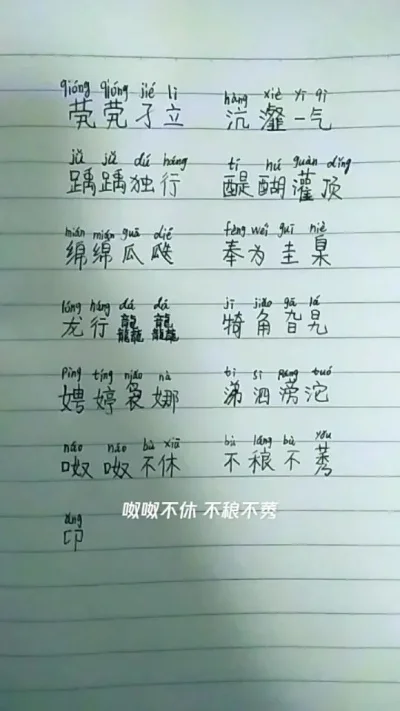 qióng qióng jié lì hàng xiè yī qì
茕茕孑立 沆瀣一气
jǔ jǔ dú háng tí hú guàn dǐng
踽踽独行 醍醐灌顶
mián mián guā dié fèng wéi guī niè
绵绵瓜瓞 奉为圭臬
lóng háng dá dá jī jiǎo gā lá
龙行龘龘 犄角旮旯
pīng tíng niǎo nà tì sì pāng tuó
娉婷袅娜 涕泗滂沱
náo náo bù xiū bù láng bù yǒu
呶呶不休 不稂不莠
呶呶不休 不稂不莠
áng
卬